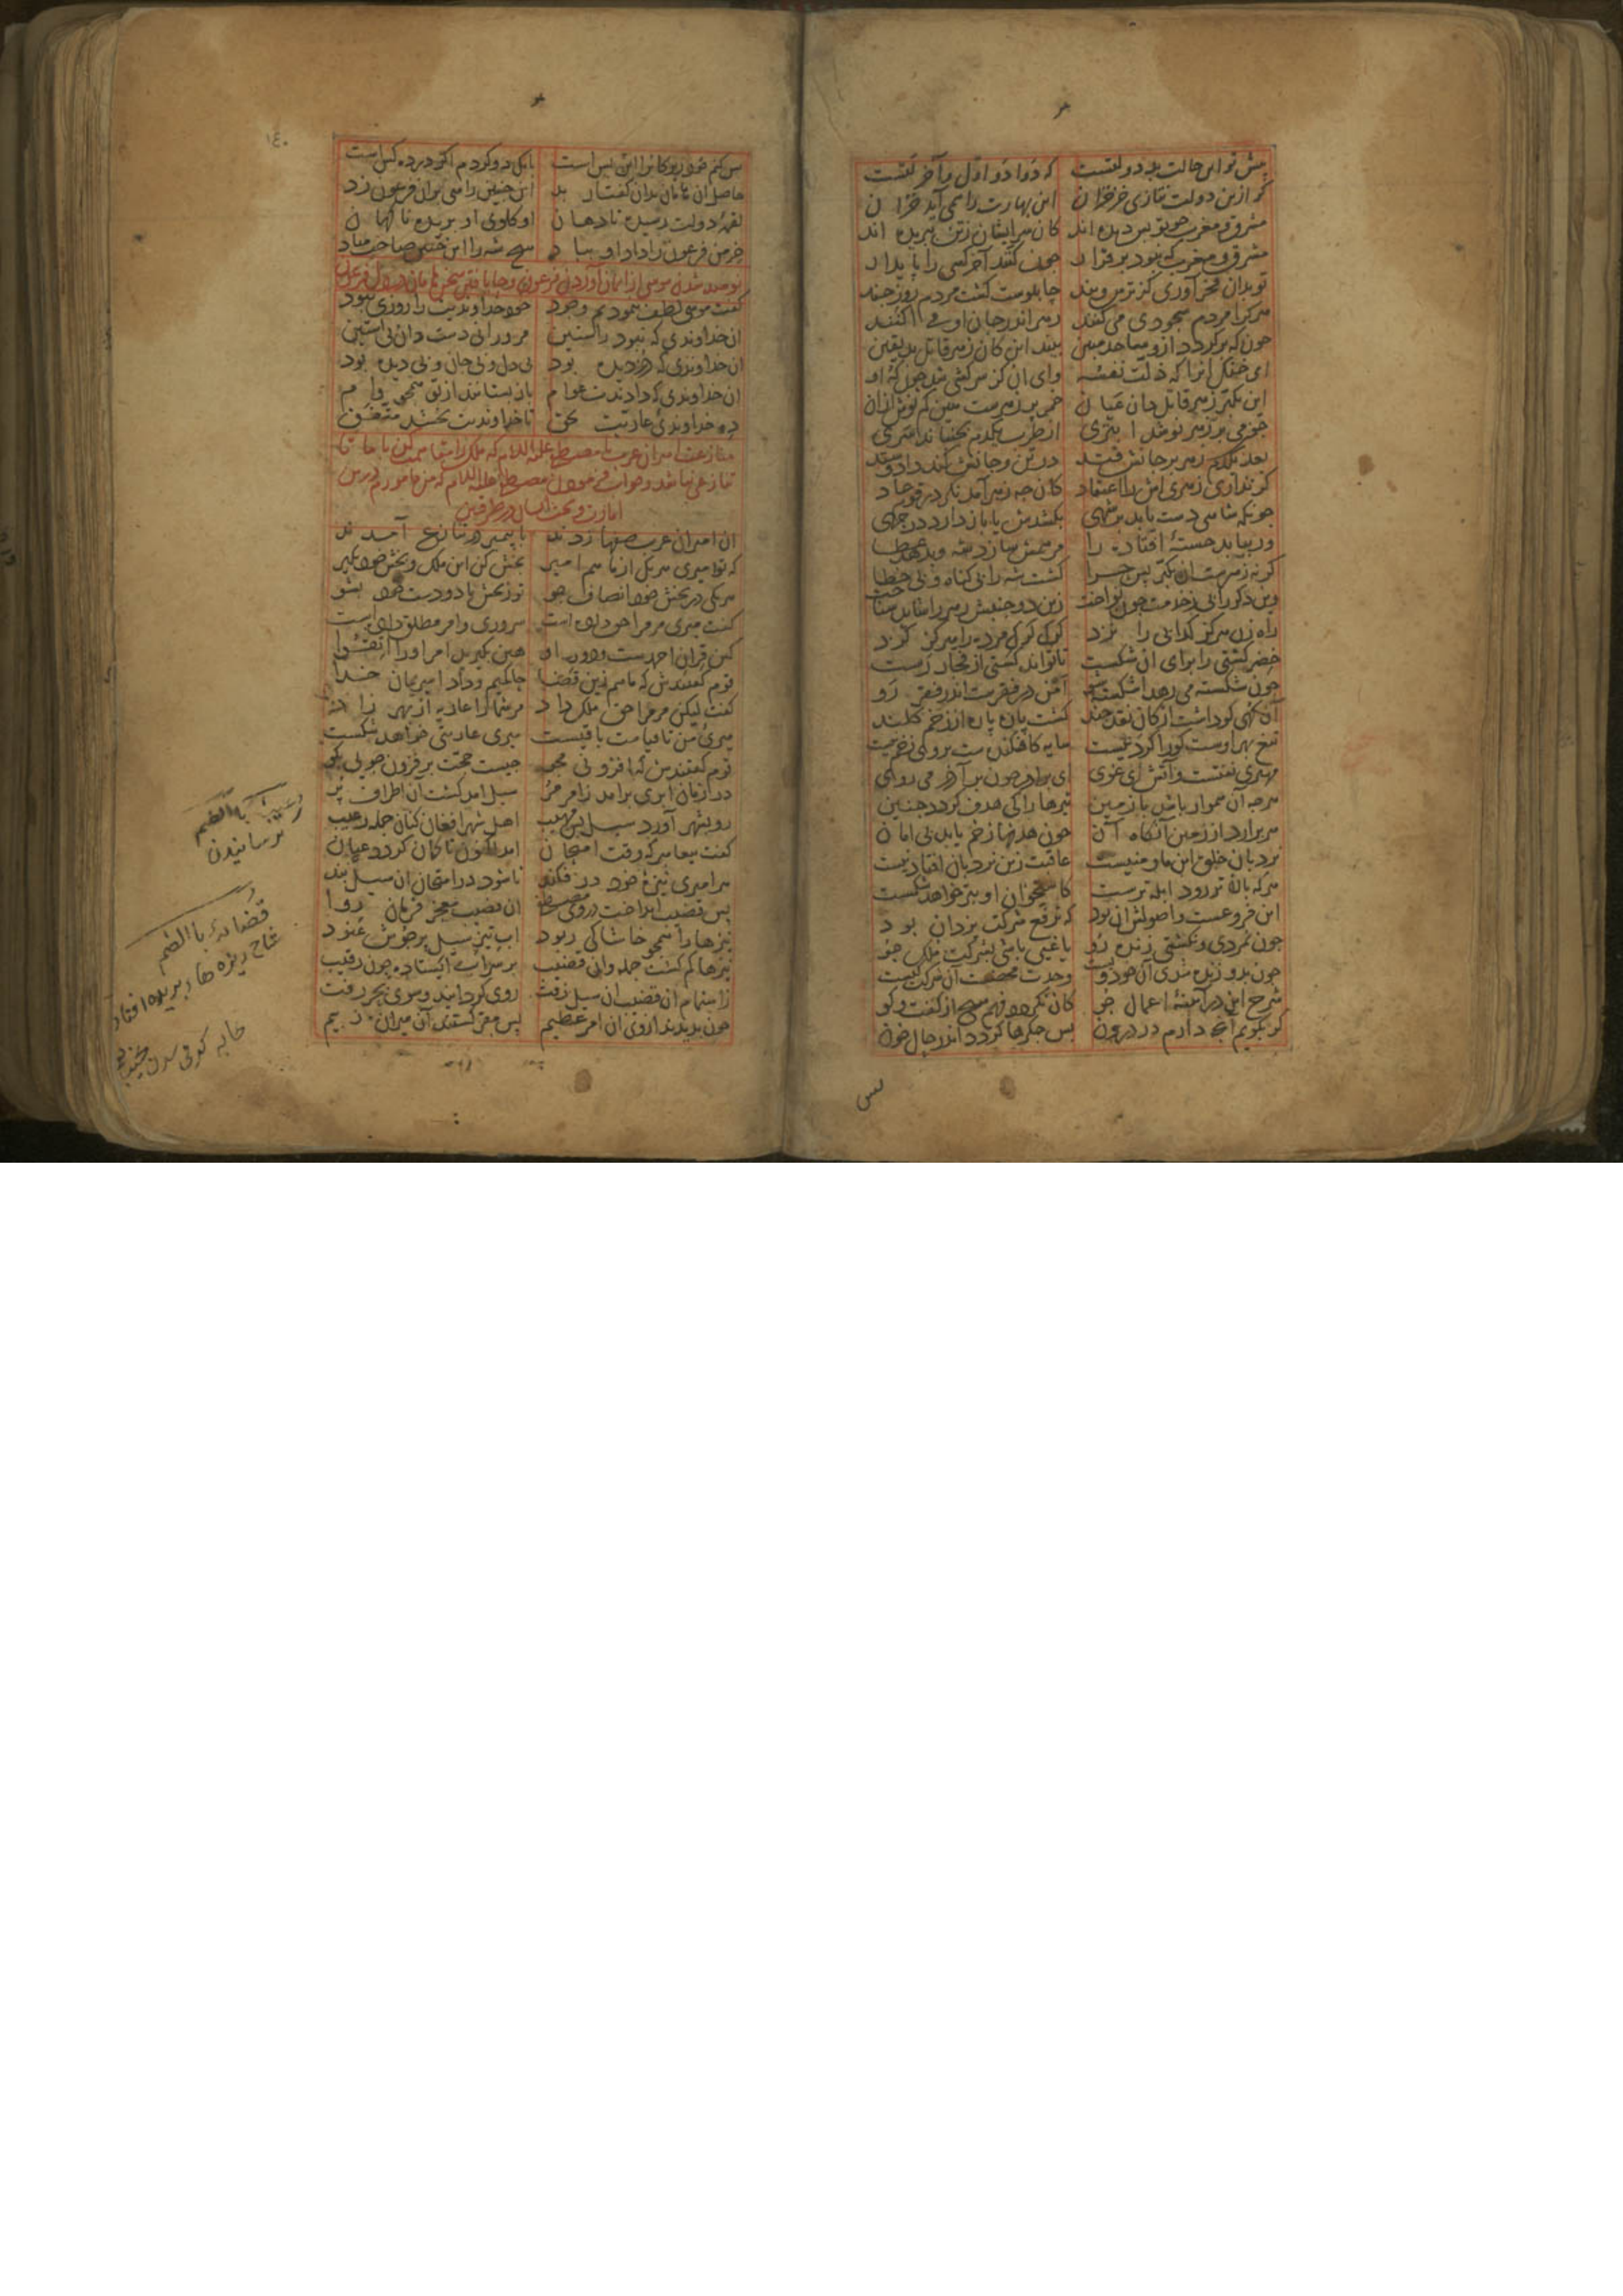 پیش تو این حالت بد دولتست که دوادو اول و آخر لتست
کر ازین دولت نتازی خزخزان این بهارت را همی آید خزان
مشرق و مغرب چو تو بس دیده اند کان سر ایشان زتن ببریده اند
مشرق و مغرب که نبود برقرار چون کنند آخر کسی را پایدار
تو بدان فخر آوری کز ترس و بند چاپلوست کشت مردم روز چند
هر کرا مردم سجودی می کنند زهر اندر جان او می آکنند
چونکه برکردد ازو ساجدش بیند این کان زهر قاتل بد یقین
ای خنک آنرا که ذلت نفسه وای آن کز سرکشی شد چون که او
این تکبر زهر قاتل دان عیان خمر پر زهرست می کم نوش ازان
چون می پر زهر نوشد از طرب یکدم بجنباند سری
بعد یکدم زهر بر جانش فتد در تن و جانش کند داد و ستد
کر نداری زهری اش را اعتقاد کان چه زهر آمد نکر در قوم عاد
چونکه شاهی دست یابد بر شهی بکشدش یا باز دارد در چهی
ور بیابد خسته افتاده را مرهمش سازد شه و بدهد عطا
کر نه زهرست آن تکبر پس چرا کشت شه را بی کناه و بی خطا
وین دکر را بی زخدمت چون نواخت زین دو جنبش زهر را شاید شناخت
راه زن هرکز کدایی را نزد کرک کرک مرده را هرکز کزد
خضر کشتی را برای آن شکست تا تواند کشتی از فجار رست
چون شکسته می رهد اشکسته شو امن در فقرست اندر فقر رو
آن کهی کو داشت از کان نقد چند کشت پاره پاره از زخم کلند
تیغ بهر اوست کو را کردنیست سایه کافکندست بر وی زخم نیست
مهتری نفتست و آتش ای غوی ای برادر چون بر آذر می روی
هرچه آن هموار باشد با زمین تیرها را کی هدف کردد ببین
سر برآرد از زمین آنکاه آن چون هدفها زخم یابد بی امان
نردبان خلق این ما و منیست عاقبت زین نردبان افتادنیست
هرکه بالاتر رود ابله ترست کاستخوان او بتر خواهد شکست
این فروعست و اصولش آن بود که ترفع شرکت یزدان بود
چون نمردی و نکشتی زنده زو یاغیی باشی بشرکت ملک جو
چون بدو زنده شدی آن خود ویست وحدت محضست آن شرکت کیست
شرح این در آینه اعمال جو کان نکردد فهم از کفت و کو
کر بکویم آنچه دارم در درون بس جکرها کردد اندر حال خون
بس
۱۴۰
بس کنم خود زیرکانرا این بس است بانک دو کردم اکر در ده کس است
حاصل آن هامان بدان کفتار بد این چنین راهی بران فرعون زد
لقمه دولت رسیده تا دهان او کلوی او بریده ناکهان
خرمن فرعون را داد او بباد هیچ شه را این چنین صاحب مباد
نومید شدن موسی از ایمان آوردن فرعون و جای یافتن سخن هامان در دل فرعون
کفت موسی لطف بنمودیم وجود خود خداوندیت را روزی نبود
آن خداوندی که نبود راستین مر ورا نی دست دان نی آستین
آن خداوندی که دزدیده بود بی دل و بی جان و بی دیده بود
آن خداوندی که دادندت عوام باز بستانند از تو همچو وام
ده خداوندی عاریت بحق تا خداوندیت بخشد متفق
منازعت امیران عرب با مصطفی علیه السلام که ملک را مقاسمت کن با ما تا
نزاعی نباشد و جواب فرمودن مصطفی علیه السلام که من مامورم درین
امارت و بحث ایشان از طرفین
آن امیران عرب جمع آمدند با پیمبر در تنازع آمدند
که تو میری هر یک از ما هم امیر بخش کن این ملک و بخش خود بکیر
هر یکی در بخش خود انصاف جو تو ز بخش ما دو دست خود بشو
کفت میری مر مرا حق داده است سروری و امر مطلق داده است
کین قران احمدست و دور او هین بکیرید امر او را اتقوا
قوم کفتندش که ما هم زین قضا حاکمیم و داد امیریمان خدا
کفت لیکن مر مرا حق ملک داد مر شما را عاریه از بهر زاد
میری من تا قیامت باقیست میری عاریتی خواهد شکست
قوم کفتندش که افزونی مجو چیست حجت بر فزون جویی بکو
در زمان ابری برآمد زامر مر سیل آمد کشت آن اطراف پر
رو بشهر آورد سیل بس مهیب اهل شهر افغان کنان جمله رعیب
کفت پیغامبر که وقت امتحان آمد اکنون تا کمان کردد عیان
هر امیری نیزه خود در فکند تا شود در امتحان آن سیل بند
پس قضیب انداخت در وی مصطفی آن قضیب معجز فرمان روا
نیزها را همچو خاشاکی ربود آب تیز سیل پر جوش عنود
نیزها کم کشت جمله وان قضیب بر سر آب ایستاده چون رقیب
زاهتمام آن قضیب آن سیل زفت روی کردانید و سوی بحر رفت
چون بدیدند از وی آن امر عظیم پس مقر کشتند آن میران ز بیم
رعب بالضم
ترسانیدن
قضابه بالضم
شاخ ریزه ها
بریده افتاد